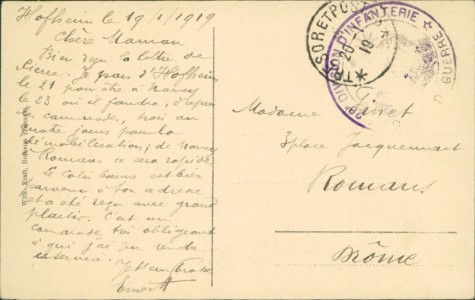 Hofheim le 19/1/1919
Chère Maman
Bien reçu ta lettre de
Pierre. Je pars d'Hofheim
le 21 pour être à Nancy
le 23 où il faudra, d'après
les camarades, trois ou
quatre jours pour la
démobilisation; de Nancy
à Romans ce sera rapide
Le colis est bien
parvenu à son adresse
et a été reçu avec grand
plaisir. C'est un
camarade très obligeant
à qui j'ai pu rendre
service.
Je t'embrasse
Ernest
Madame Givet
3 place Jacquemart
Romans
Drôme
TRESOR ET POSTES
20
19
DIVISION D'INFANTERIE
GUERRE
Wilh. Kraft, Hofheim